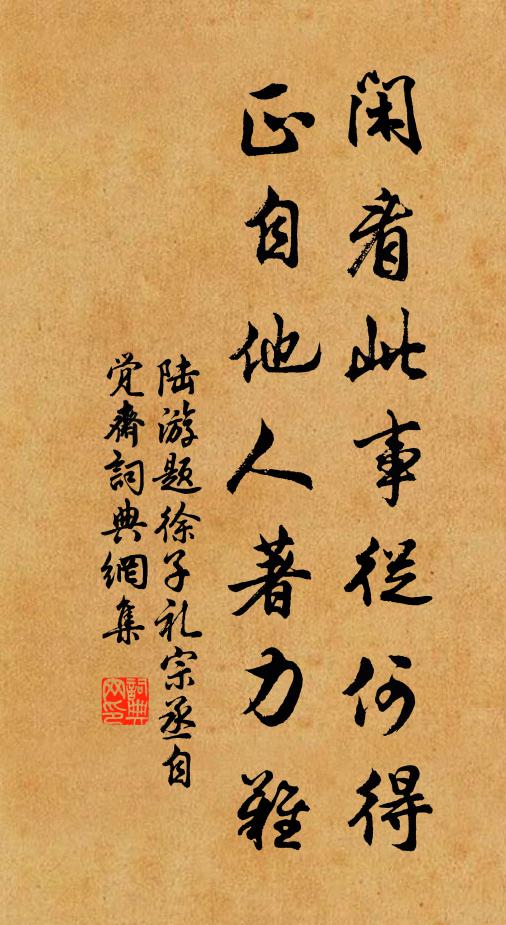 閑看此事從何得
正自他人著力難
陆游题徐子礼宗丞自
觉斋詞典網集
詞典
网印